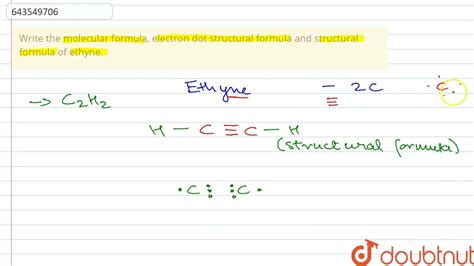 643549706
Write the molecular formula, electron dot structural formula and structural
formula of ethyne.
Ethyne — 2C · C :
≡
→ C2H2
H — C ≡ C — H
(structural formula)
· C ⋮ ⋮ C ·
doubtnut